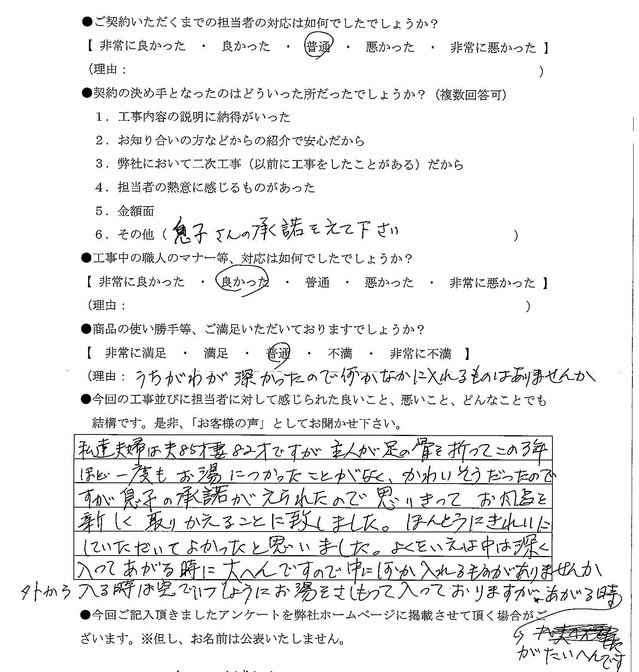 ●ご契約いただくまでの担当者の対応は如何でしたでしょうか？
【 非常に良かった ・ 良かった ・ 普通 ・ 悪かった ・ 非常に悪かった 】
（理由： ）
●契約の決め手となったのはどういった所だったでしょうか？（複数回答可）
１．工事内容の説明に納得がいった
２．お知り合いの方などからの紹介で安心だから
３．弊社において二次工事（以前に工事をしたことがある）だから
４．担当者の熱意に感じるものがあった
５．金額面
６．その他（ 息子さんの承諾をえて下さい ）
●工事中の職人のマナー等、対応は如何でしたでしょうか？
【 非常に良かった ・ 良かった ・ 普通 ・ 悪かった ・ 非常に悪かった 】
（理由： ）
●商品の使い勝手等、ご満足いただいておりますでしょうか？
【 非常に満足 ・ 満足 ・ 普通 ・ 不満 ・ 非常に不満 】
（理由：うちがわが深かったので何かなかに入れるものはありませんか
●今回の工事並びに担当者に対して感じられた良いこと、悪いこと、どんなことでも
結構です。是非、「お客様の声」としてお聞かせ下さい。
私達夫婦は夫85才妻82才ですが主人が足の骨を折ってこの3年
ほど一度もお湯につかったことがなく、かわいそうだったので
すが息子の承諾がえられたので思いきってお風呂を
新しく取りかえることに致しました。ほんとうにきれいに
していただいてよかったと思いました。よくをいえば中は深く
入ってあがる時に大へんですので中に何か入れるものがありませんか
外から入る時は空でいっしょうにお湯をさしもって入っておりますが、あがる時
がたいへんです
●今回ご記入頂きましたアンケートを弊社ホームページに掲載させて頂く場合がご
ざいます。※但し、お名前は公表いたしません。